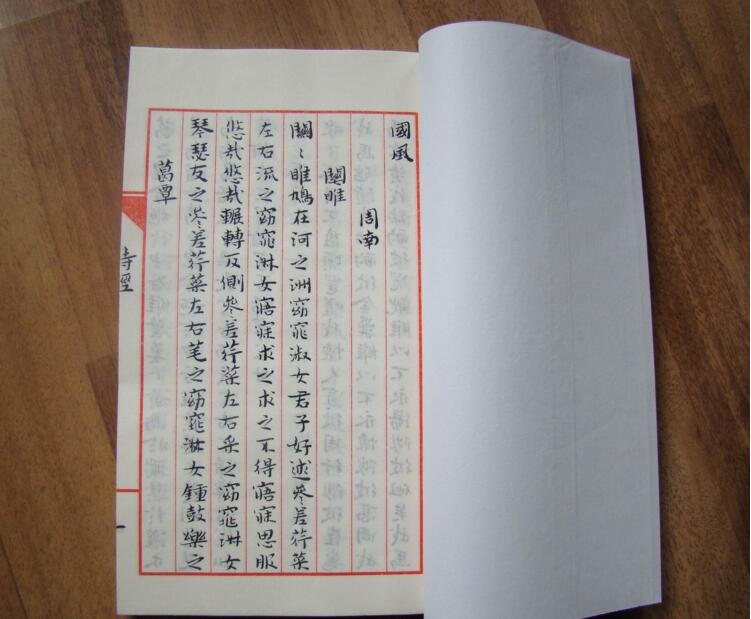 國風
周南
關雎
關〻雎鳩在河之洲窈窕淑女君子好逑參差荇菜
左右流之窈窕淑女寤寐求之求之不得寤寐思服
悠哉悠哉輾轉反側參差荇菜左右采之窈窕淑女
琴瑟友之參差荇菜左右芼之窈窕淑女鍾鼓樂之
葛覃
詩經
一